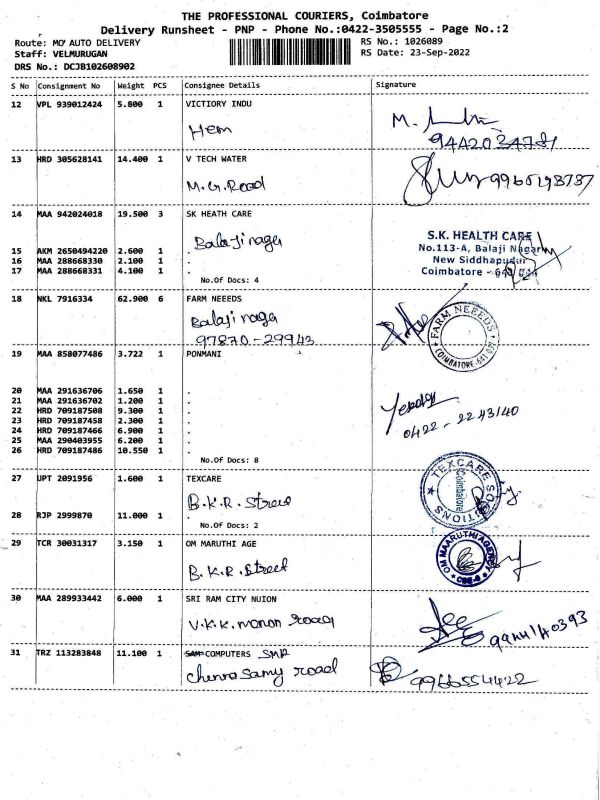 THE PROFESSIONAL COURIERS, Coimbatore
Delivery Runsheet - PNP - Phone No.:0422-3505555 - Page No.:2
Route: MO' AUTO DELIVERY
RS No.: 1026089
Staff: VELMURUGAN
RS Date: 23-Sep-2022
DRS No.: DCJB102608902
S No Consignment No Weight PCS Consignee Details Signature
12 VPL 939012424 5.800 1 VICTIORY INDU
Hem
M.
13 HRD 305628141 14.400 1 V TECH WATER
M.G.Road
9965198787
14 MAA 942024018 19.500 3 SK HEATH CARE
Balaji naga
S.K. HEALTH CARE
No.113-A, Balaji Nagar
New Siddhapudur
Coimbatore - 641 044
15 AKM 2650494220 2.600 1 .
16 MAA 288668330 2.100 1 .
17 MAA 288668331 4.100 1 .
No.Of Docs: 4
18 NKL 7916334 62.900 6 FARM NEEEDS
Balaji naga
97870-29943
FARM NEEEDS
COIMBATORE-641
19 MAA 858077486 3.722 1 PONMANI
20 MAA 291636706 1.650 1 .
21 MAA 291636702 1.200 1 .
22 HRD 709187508 9.300 1 .
23 HRD 709187458 2.300 1 .
24 HRD 709187466 6.900 1 .
25 MAA 290403955 6.200 1 .
26 HRD 709187486 10.550 1 .
No.Of Docs: 8
0422-2243140
27 UPT 2091956 1.600 1 TEXCARE
B.K.R. Street
TEXCARE SOLUTIONS
Coimbatore
28 RJP 2999870 11.000 1 .
No.Of Docs: 2
29 TCR 30031317 3.150 1 OM MARUTHI AGE
B.K.R.Street
OM MAARUTHI AGENCY
CBE-9
30 MAA 289933442 6.000 1 SRI RAM CITY NUION
V.K.K.manon road
9944140393
31 TRZ 113283848 11.100 1 SAM COMPUTERS SMP
Chinnasamy road
9966554422